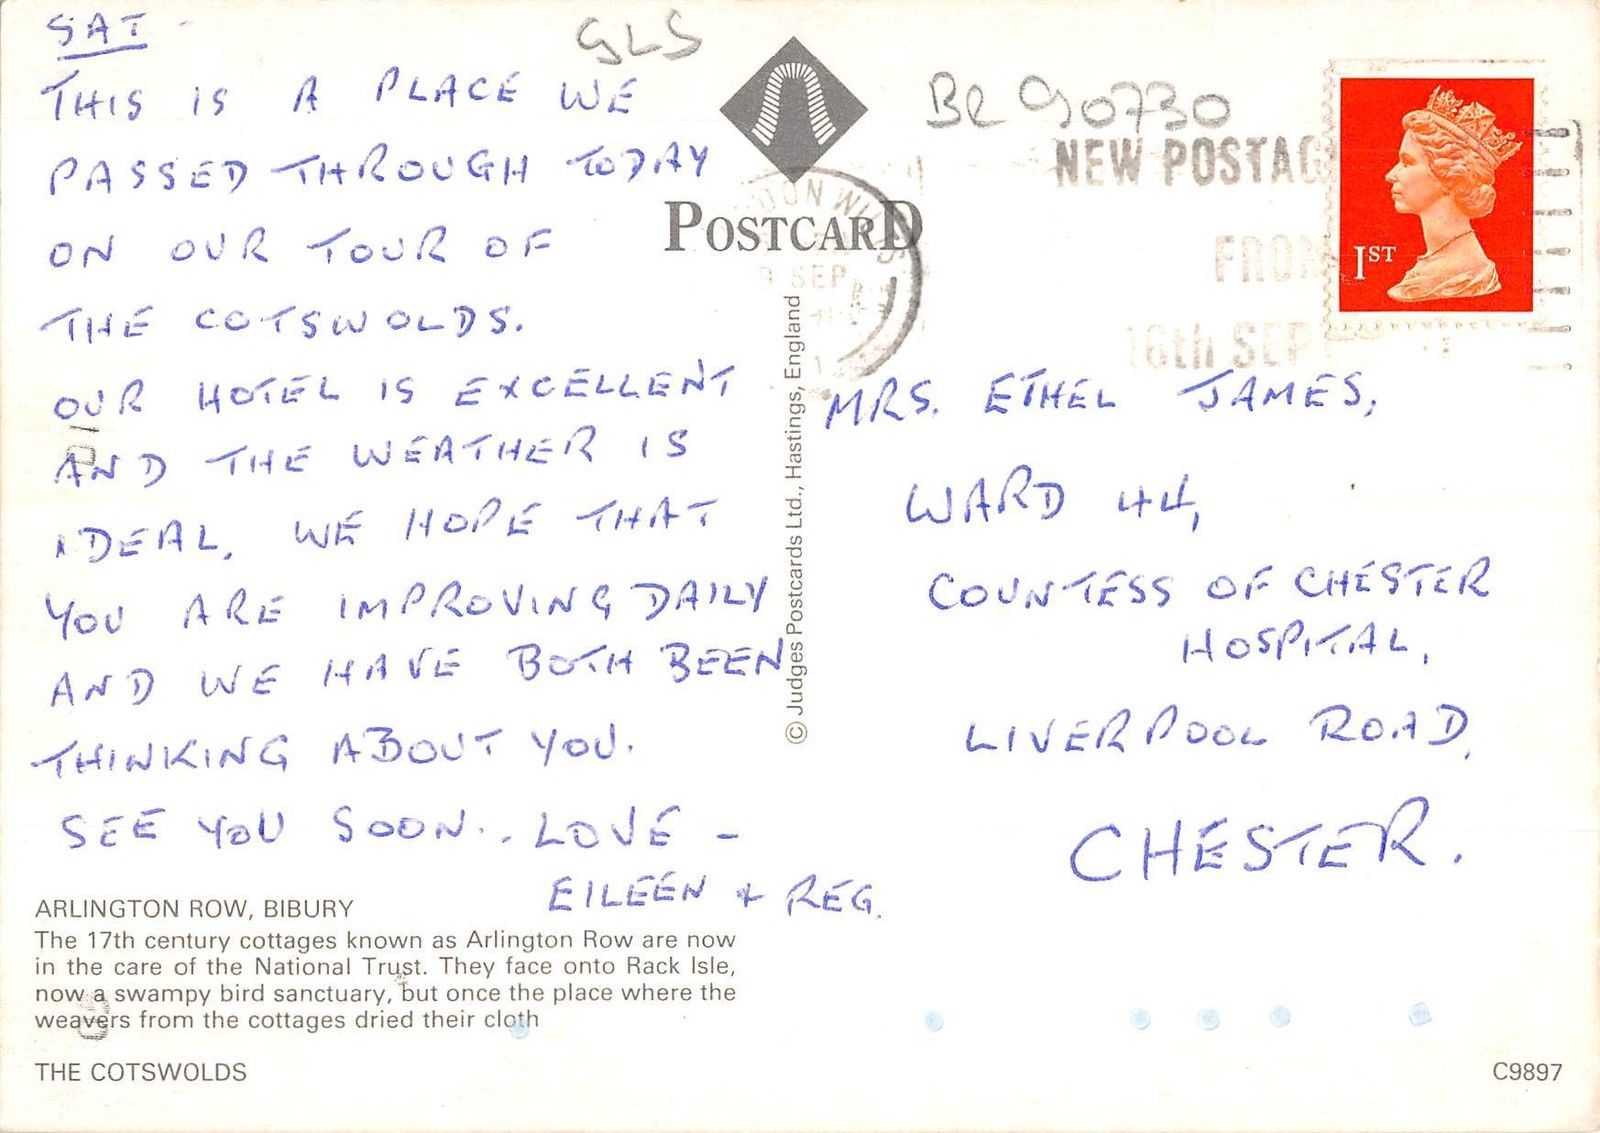 SAT
THIS IS A PLACE WE
PASSED THROUGH TODAY
ON OUR TOUR OF
THE COTSWOLDS.
OUR HOTEL IS EXCELLENT
AND THE WEATHER IS
IDEAL, WE HOPE THAT
YOU ARE IMPROVING DAILY
AND WE HAVE BOTH BEEN
THINKING ABOUT YOU.
SEE YOU SOON.. LOVE -
EILEEN + REG.
ARLINGTON ROW, BIBURY
The 17th century cottages known as Arlington Row are now
in the care of the National Trust. They face onto Rack Isle,
now a swampy bird sanctuary, but once the place where the
weavers from the cottages dried their cloth
THE COTSWOLDS
GLS
POSTCARD
© Judges Postcards Ltd., Hastings, England
SEP
90730
NEW
FROM
16th SEP
1ST
MRS. ETHEL JAMES,
WARD 44,
COUNTESS OF CHESTER
HOSPITAL,
LIVERPOOL ROAD,
CHESTER.
C9897